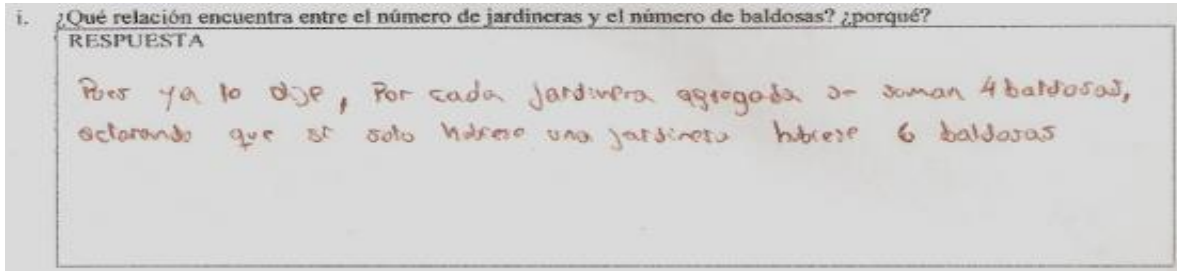 i. ¿Qué relación encuentra entre el número de jardineras y el número de baldosas? ¿porqué?
RESPUESTA
Pues ya lo dije, Por cada jardinera agregada se suman 4 baldosas,
aclarando que si solo hubiese una jardinera hubiese 6 baldosas